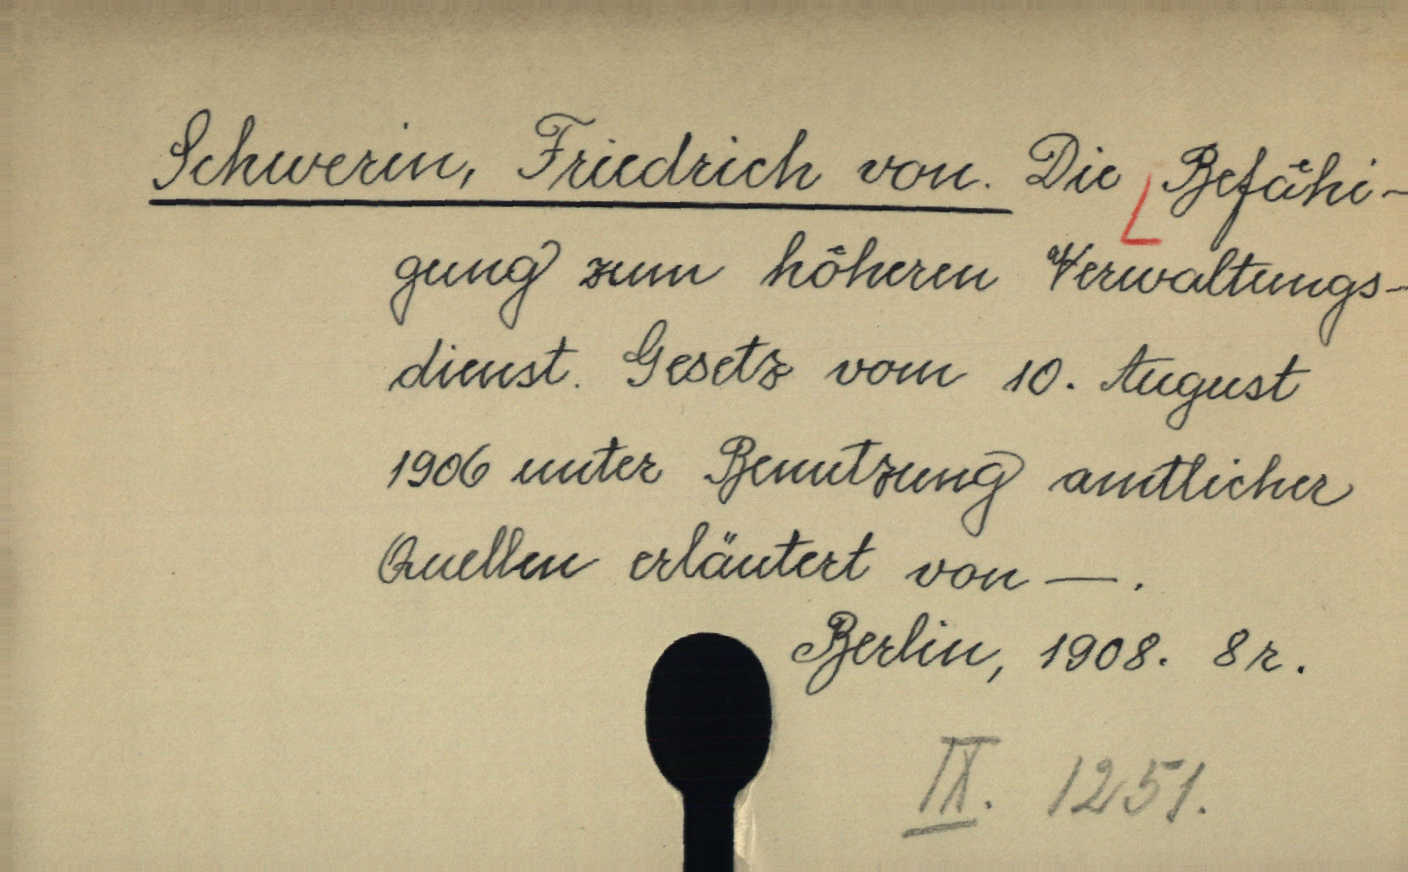 Schwerin, Friedrich von. Die Befähi-
gung zum höheren Verwaltungs-
dienst. Gesetz vom 10. August
1906 unter Benutzung amtlicher
Quellen erläutert von —.
Berlin, 1908. 8r.
IX. 1251.